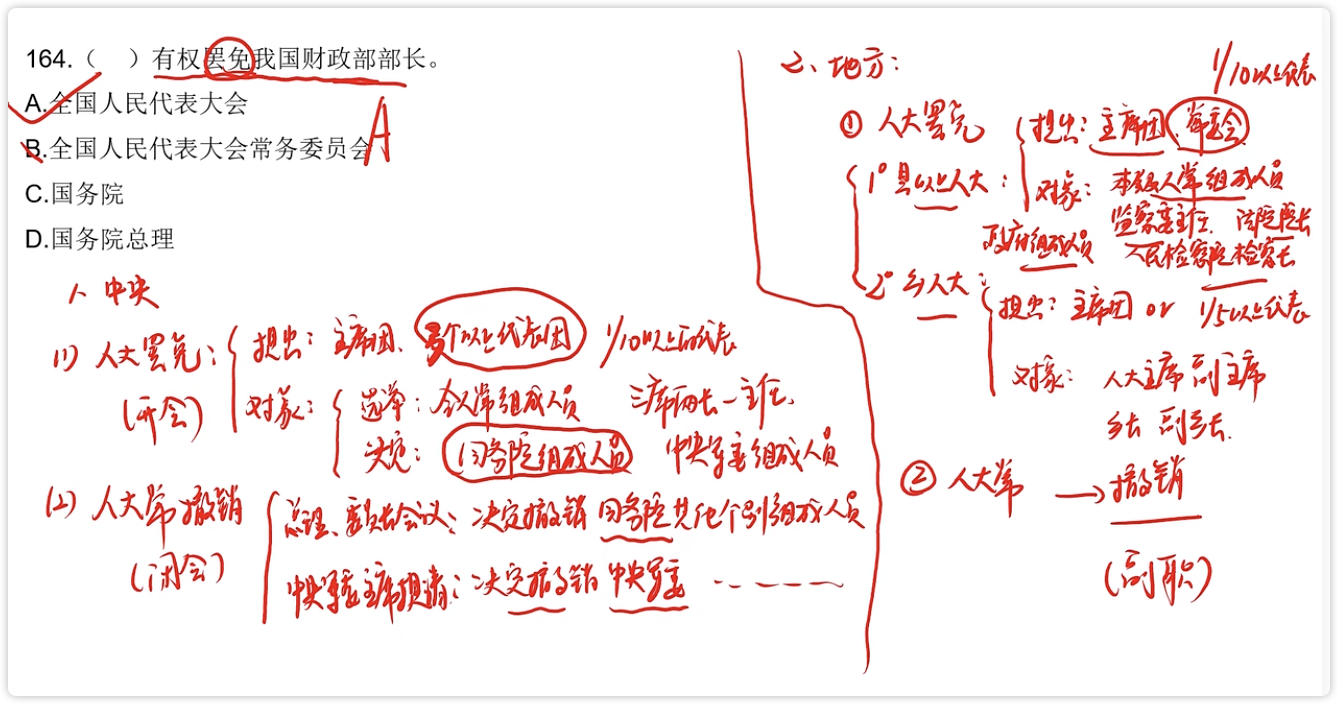 164.（ ）有权罢免我国财政部部长。
A.全国人民代表大会
B.全国人民代表大会常务委员会
A
C.国务院
D.国务院总理
1、中央
(1) 人大罢免：
(开会)
提出：主席团、3个以上代表团 1/10以上的代表
对象：
选举：全人常组成人员 三席两长一主任、
决定：国务院组成人员 中央军委组成人员
(2) 人大常撤销
(闭会)
总理、委员长会议：决定撤销 国务院其他个别组成人员
中央军委主席提请：决定撤销 中央军委
2、地方：
1/10以上代表
① 人大罢免
提出：主席团、常委会
1° 县以上人大：
对象：本级人常组成人员
监察委主任、法院院长
政府组成人员
人民检察院检察长
2° 乡人大：
提出：主席团 or 1/5以上代表
对象：人大主席 副主席
乡长 副乡长.
② 人大常 → 撤销
(副职)